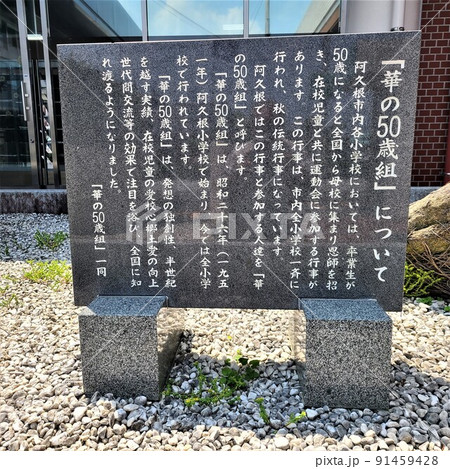 「華の50歳組」について
阿久根市内各小学校においては、卒業生が
50歳になると全国から母校に集まり恩師を招
き、在校児童と共に運動会に参加する行事が
あります。この行事は、市内全小学校一斉に
行われ、秋の伝統行事になっています。
阿久根ではこの行事と参加する人達を「華
の50歳組」と呼びます。
「華の50歳組」は、昭和二十六年（一九五
一年）阿久根小学校で始まり、今では全小学
校で行われています。
「華の50歳組」は、発想の独創性、半世紀
を越す実績、在校児童の愛校心郷土愛の向上
世代間交流等の効果で注目を浴び、全国に知
れ渡るようになりました。
「華の50歳組」一同
PIXTA
pixta.jp - 91459428